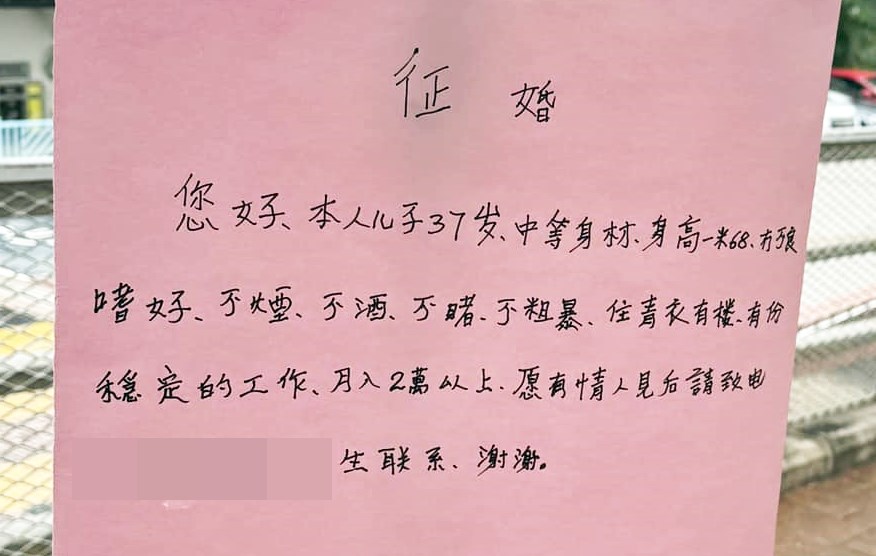 征婚
您好、本人儿子37岁、中等身材、身高一米68、冇不良
嗜好、不煙、不酒、不賭、不粗暴、住青衣有楼、有份
穩定的工作、月入2萬以上、愿有情人見后請致电
生联系、謝謝。